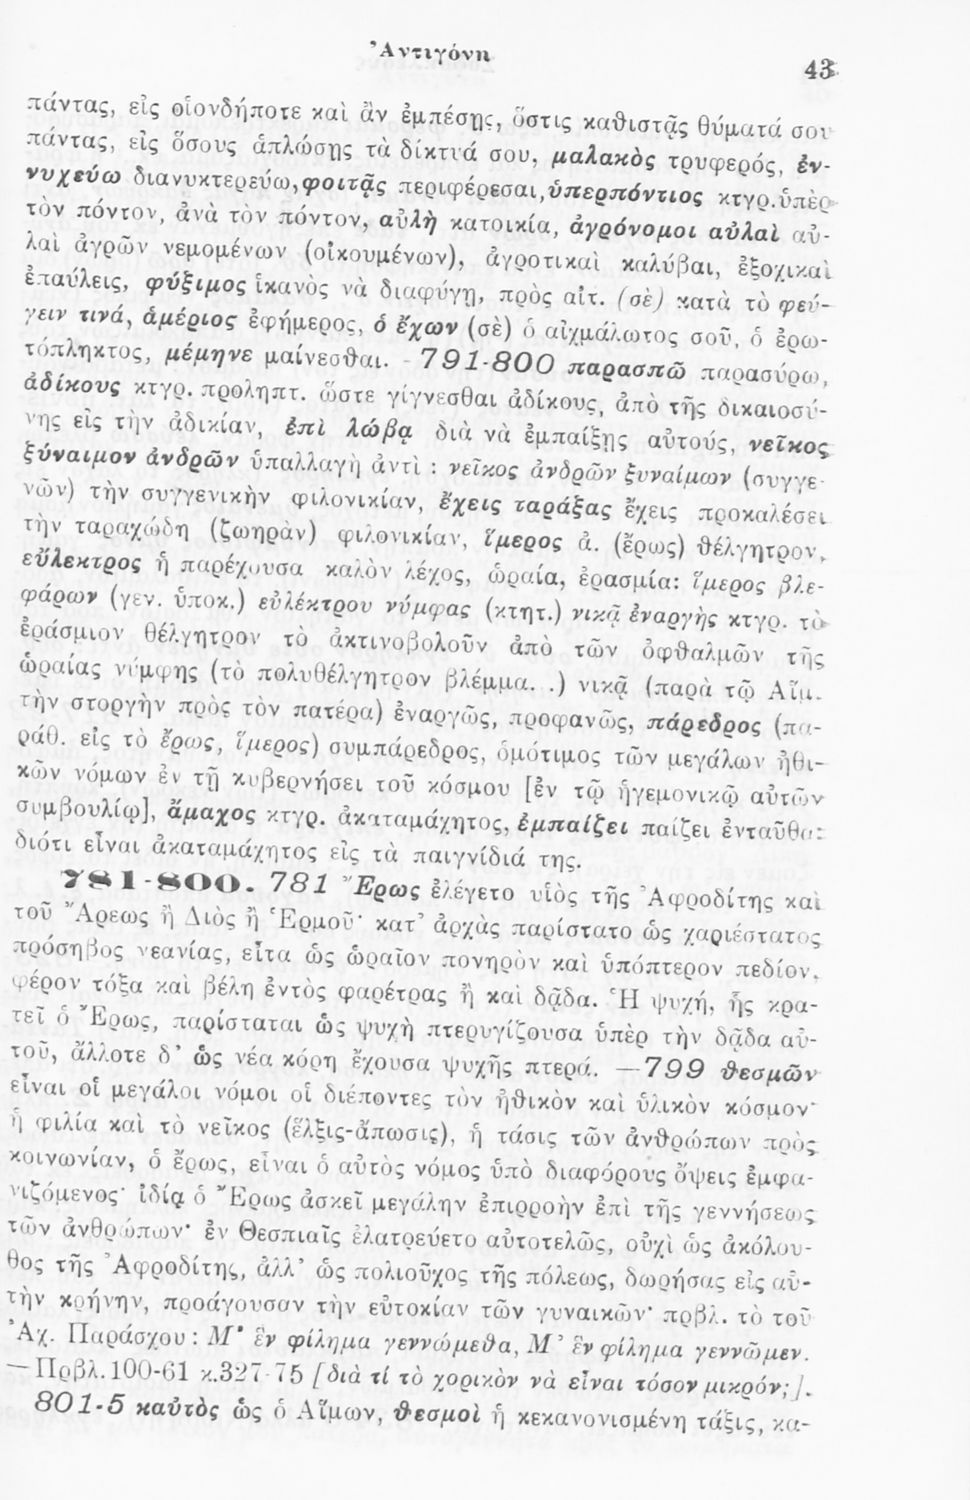 Ἀντιγόνη
43
πάντας, εἰς οἱονδήποτε καὶ ἂν ἐμπέσῃς, ὅστις καθιστᾷς θύματά σου
πάντας, εἰς ὅσους ἁπλώσῃς τὰ δίκτυά σου, μαλακὸς τρυφερός, ἐν-
νυχεύω διανυκτερεύω, φοιτᾷς περιφέρεσαι, ὑπερπόντιος κτγρ. ὑπὲρ
τὸν πόντον, ἀνὰ τὸν πόντον, αὐλὴ κατοικία, ἀγρόνομοι αὐλαὶ αὐ-
λαὶ ἀγρῶν νεμομένων (οἰκουμένων), ἀγροτικαὶ καλύβαι, ἐξοχικαὶ
ἐπαύλεις, φύξιμος ἱκανὸς νὰ διαφύγῃ, πρὸς αἰτ. (σὲ) κατὰ τὸ φεύ-
γειν τινά, ἁμέριος ἐφήμερος, ὁ ἔχων (σὲ) ὁ αἰχμάλωτος σοῦ, ὁ ἐρω-
τόπληκτος, μέμηνε μαίνεσθαι. - 791-800 παρασπῶ παρασύρω,
ἀδίκους κτγρ. προληπτ. ὥστε γίγνεσθαι ἀδίκους, ἀπὸ τῆς δικαιοσύ-
νης εἰς τὴν ἀδικίαν, ἐπὶ λώβᾳ διὰ νὰ ἐμπαίξῃς αὐτούς, νεῖκος
ξύναιμον ἀνδρῶν ὑπαλλαγὴ ἀντὶ : νεῖκος ἀνδρῶν ξυναίμων (συγγε-
νῶν) τὴν συγγενικὴν φιλονικίαν, ἔχεις ταράξας ἔχεις προκαλέσει
τὴν ταραχώδη (ζωηρὰν) φιλονικίαν, ἵμερος ἁ. (ἔρως) θέλγητρον,
εὔλεκτρος ἡ παρέχουσα καλὸν λέχος, ὡραία, ἐρασμία: ἵμερος βλε-
φάρων (γεν. ὑποκ.) εὐλέκτρου νύμφας (κτητ.) νικᾷ ἐναργὴς κτγρ. τὸ
ἐράσμιον θέλγητρον τὸ ἀκτινοβολοῦν ἀπὸ τῶν ὀφθαλμῶν τῆς
ὡραίας νύμφης (τὸ πολυθέλγητρον βλέμμα. .) νικᾷ (παρὰ τῷ Αἵμ.
τὴν στοργὴν πρὸς τὸν πατέρα) ἐναργῶς, προφανῶς, πάρεδρος (πα-
ράθ. εἰς τὸ ἔρως, ἵμερος) συμπάρεδρος, ὁμότιμος τῶν μεγάλων ἠθι-
κῶν νόμων ἐν τῇ κυβερνήσει τοῦ κόσμου [ἐν τῷ ἡγεμονικῷ αὐτῶν
συμβουλίῳ], ἄμαχος κτγρ. ἀκαταμάχητος, ἐμπαίζει παίζει ἐνταῦθα:
διότι εἶναι ἀκαταμάχητος εἰς τὰ παιγνίδιά της.
781-800. 781 Ἔρως ἐλέγετο υἱὸς τῆς Ἀφροδίτης καὶ
τοῦ Ἄρεως ἢ Διὸς ἢ Ἑρμοῦ· κατ' ἀρχὰς παρίστατο ὡς χαριέστατος
πρόσηβος νεανίας, εἶτα ὡς ὡραῖον πονηρὸν καὶ ὑπόπτερον πεδίον,
φέρον τόξα καὶ βέλη ἐντὸς φαρέτρας ἢ καὶ δᾷδα. Ἡ ψυχή, ἧς κρα-
τεῖ ὁ Ἔρως, παρίσταται ὡς ψυχὴ πτερυγίζουσα ὑπὲρ τὴν δᾷδα αὐ-
τοῦ, ἄλλοτε δ' ὡς νέα κόρη ἔχουσα ψυχῆς πτερά. —799 θεσμῶν
εἶναι οἱ μεγάλοι νόμοι οἱ διέποντες τὸν ἠθικὸν καὶ ὑλικὸν κόσμον·
ἡ φιλία καὶ τὸ νεῖκος (ἕλξις-ἄπωσις), ἡ τάσις τῶν ἀνθρώπων πρὸς
κοινωνίαν, ὁ ἔρως, εἶναι ὁ αὐτὸς νόμος ὑπὸ διαφόρους ὄψεις ἐμφα-
νιζόμενος· ἰδίᾳ ὁ Ἔρως ἀσκεῖ μεγάλην ἐπιρροὴν ἐπὶ τῆς γεννήσεως
τῶν ἀνθρώπων· ἐν Θεσπιαῖς ἐλατρεύετο αὐτοτελῶς, οὐχὶ ὡς ἀκόλου-
θος τῆς Ἀφροδίτης, ἀλλ' ὡς πολιοῦχος τῆς πόλεως, δωρήσας εἰς αὐ-
τὴν κρήνην, προάγουσαν τὴν εὐτοκίαν τῶν γυναικῶν· πρβλ. τὸ τοῦ
Ἀχ. Παράσχου : Μ' ἓν φίλημα γεννώμεθα, Μ' ἓν φίλημα γεννῶμεν.
—Πρβλ. 100-61 κ. 327-75 [διὰ τί τὸ χορικὸν νὰ εἶναι τόσον μικρόν;].
801-5 καὐτὸς ὡς ὁ Αἵμων, θεσμοὶ ἡ κεκανονισμένη τάξις, κα-